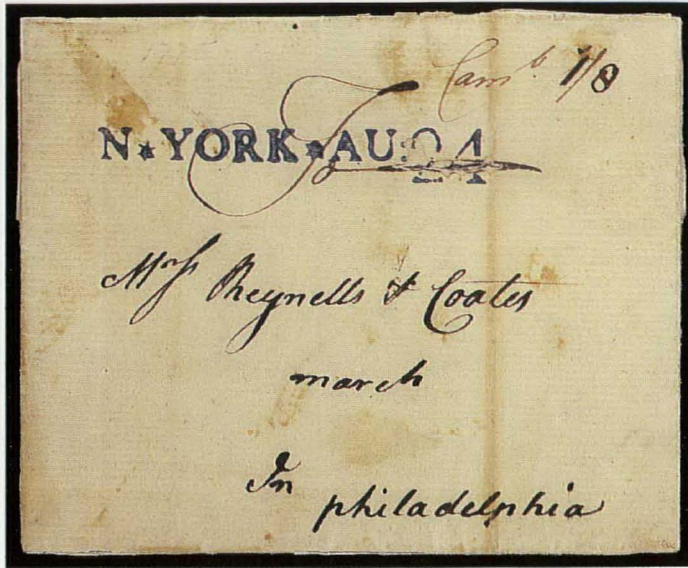 Camb 1/8
N*YORK*AU:24
Mrss Reynells & Coates
march
In
philadelphia